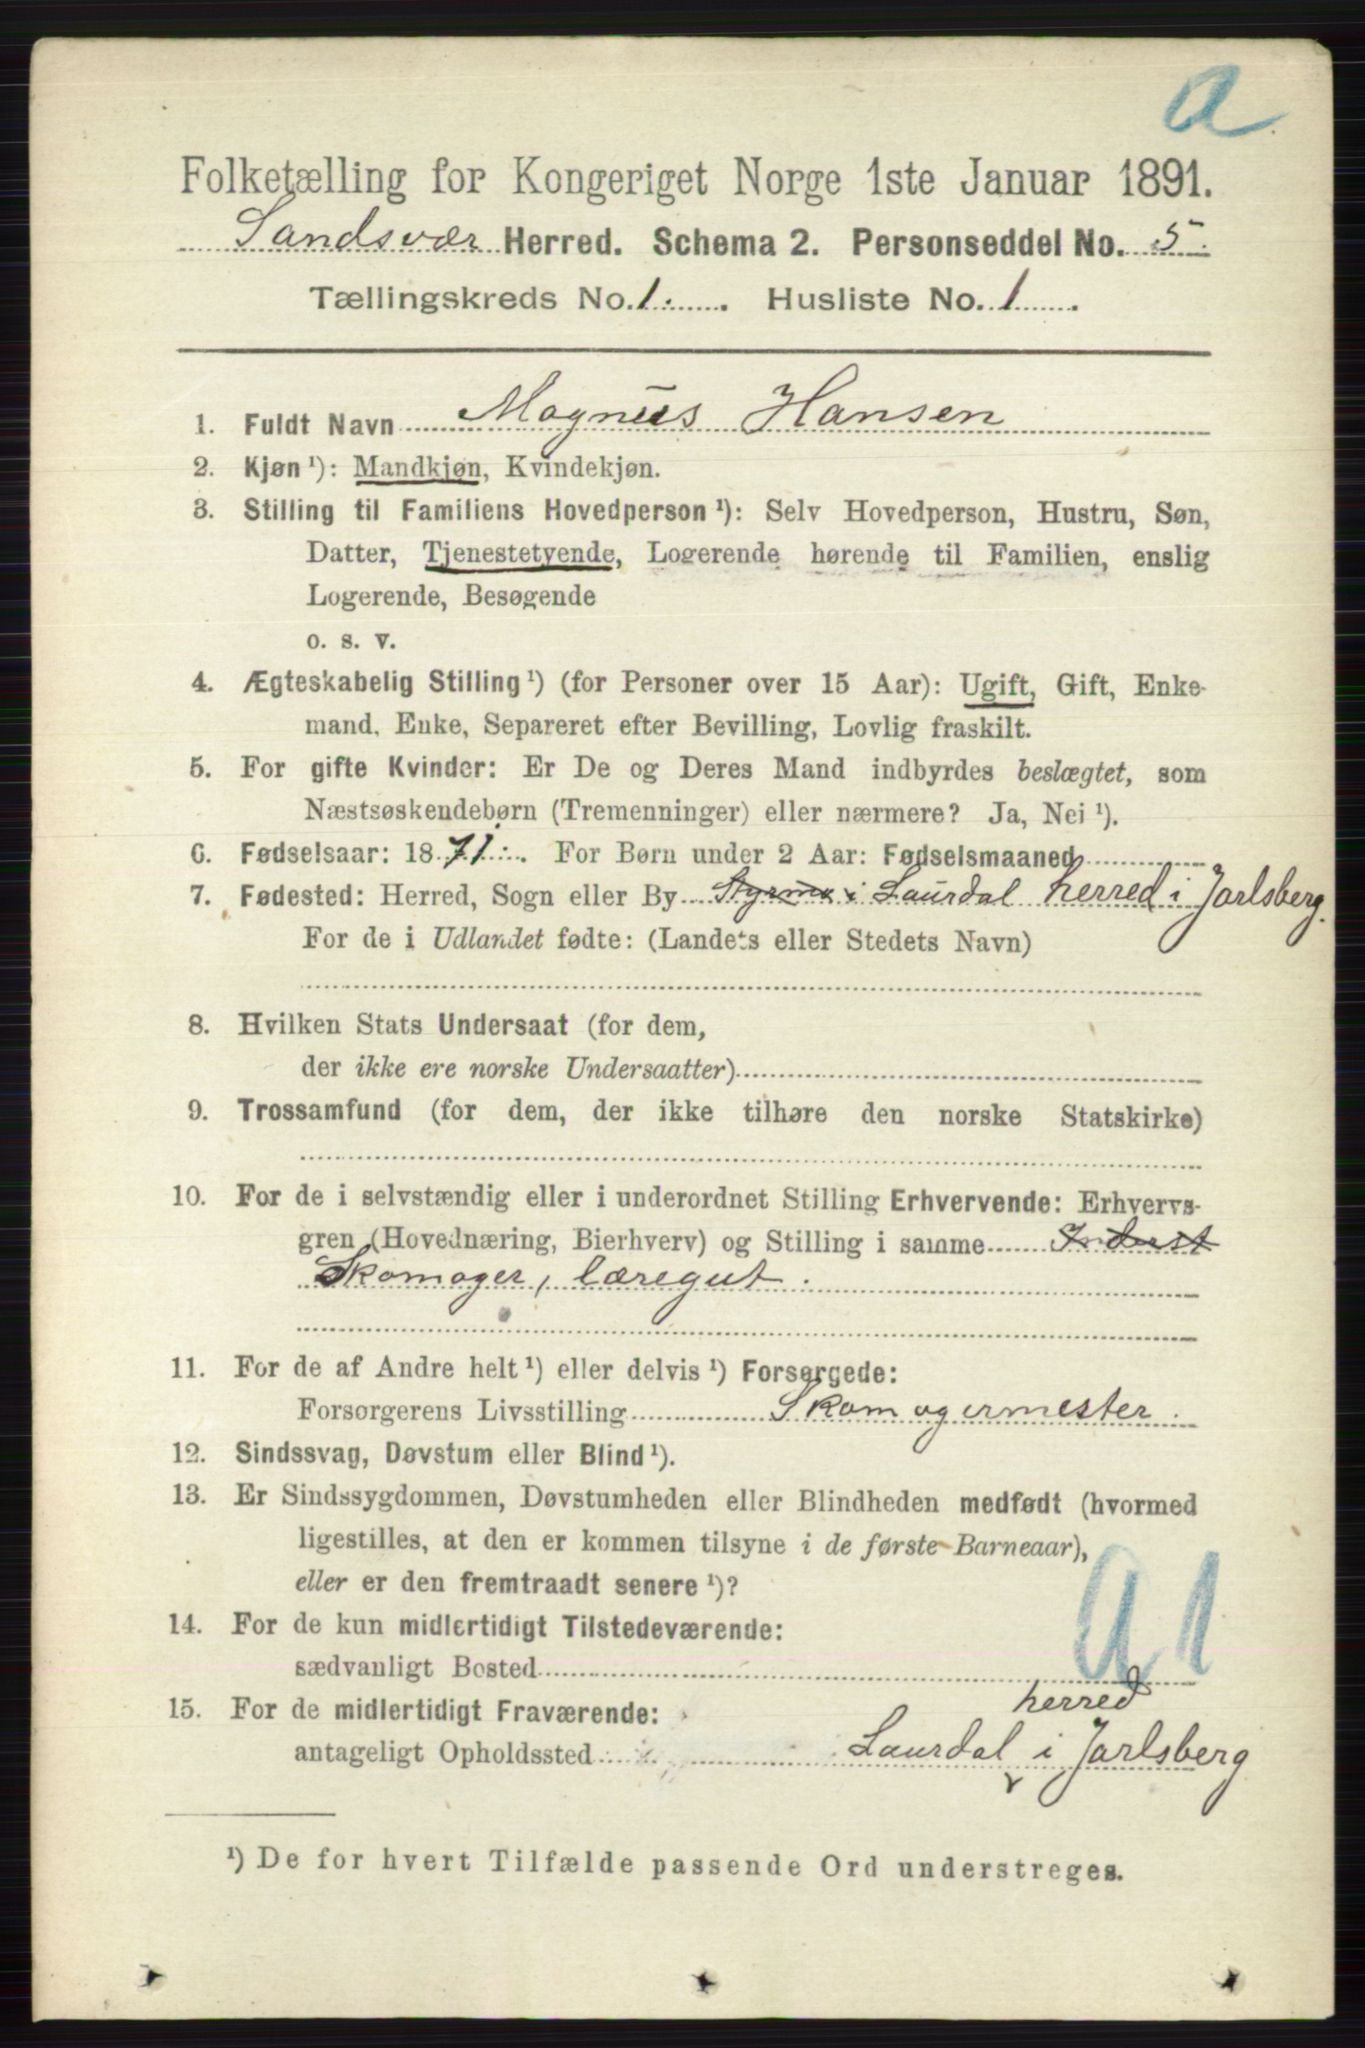 a
Folketælling for Kongeriget Norge 1ste Januar 1891.
Sandsvær Herred. Schema 2. Personseddel No. 5.
Tællingskreds No. 1. Husliste No. 1.
1. Fuldt Navn Magnus Hansen
2. Kjøn ¹): Mandkjøn, Kvindekjøn.
3. Stilling til Familiens Hovedperson ¹): Selv Hovedperson, Hustru, Søn,
Datter, Tjenestetyende, Logerende hørende til Familien, enslig
Logerende, Besøgende
o. s. v.
4. Ægteskabelig Stilling ¹) (for Personer over 15 Aar): Ugift, Gift, Enke-
mand, Enke, Separeret efter Bevilling, Lovlig fraskilt.
5. For gifte Kvinder: Er De og Deres Mand indbyrdes beslægtet, som
Næstsøskendebørn (Tremenninger) eller nærmere? Ja, Nei ¹).
6. Fødselsaar: 1871. For Børn under 2 Aar: Fødselsmaaned
7. Fødested: Herred, Sogn eller By i Laurdal herred i Jarlsberg.
For de i Udlandet fødte: (Landets eller Stedets Navn)
8. Hvilken Stats Undersaat (for dem,
der ikke ere norske Undersaatter)
9. Trossamfund (for dem, der ikke tilhøre den norske Statskirke)
10. For de i selvstændig eller i underordnet Stilling Erhvervende: Erhvervs-
gren (Hovednæring, Bierhverv) og Stilling i samme Indust
Skomager, læregut.
11. For de af Andre helt ¹) eller delvis ¹) Forsørgede:
Forsørgerens Livsstilling Skomagermester.
12. Sindssvag, Døvstum eller Blind ¹).
13. Er Sindssygdommen, Døvstumheden eller Blindheden medfødt (hvormed
ligestilles, at den er kommen tilsyne i de første Barneaar),
eller er den fremtraadt senere ¹)?
a 1
14. For de kun midlertidigt Tilstedeværende:
sædvanligt Bosted
15. For de midlertidigt Fraværende:
herred
antageligt Opholdssted Laurdal i Jarlsberg
¹) De for hvert Tilfælde passende Ord understreges.